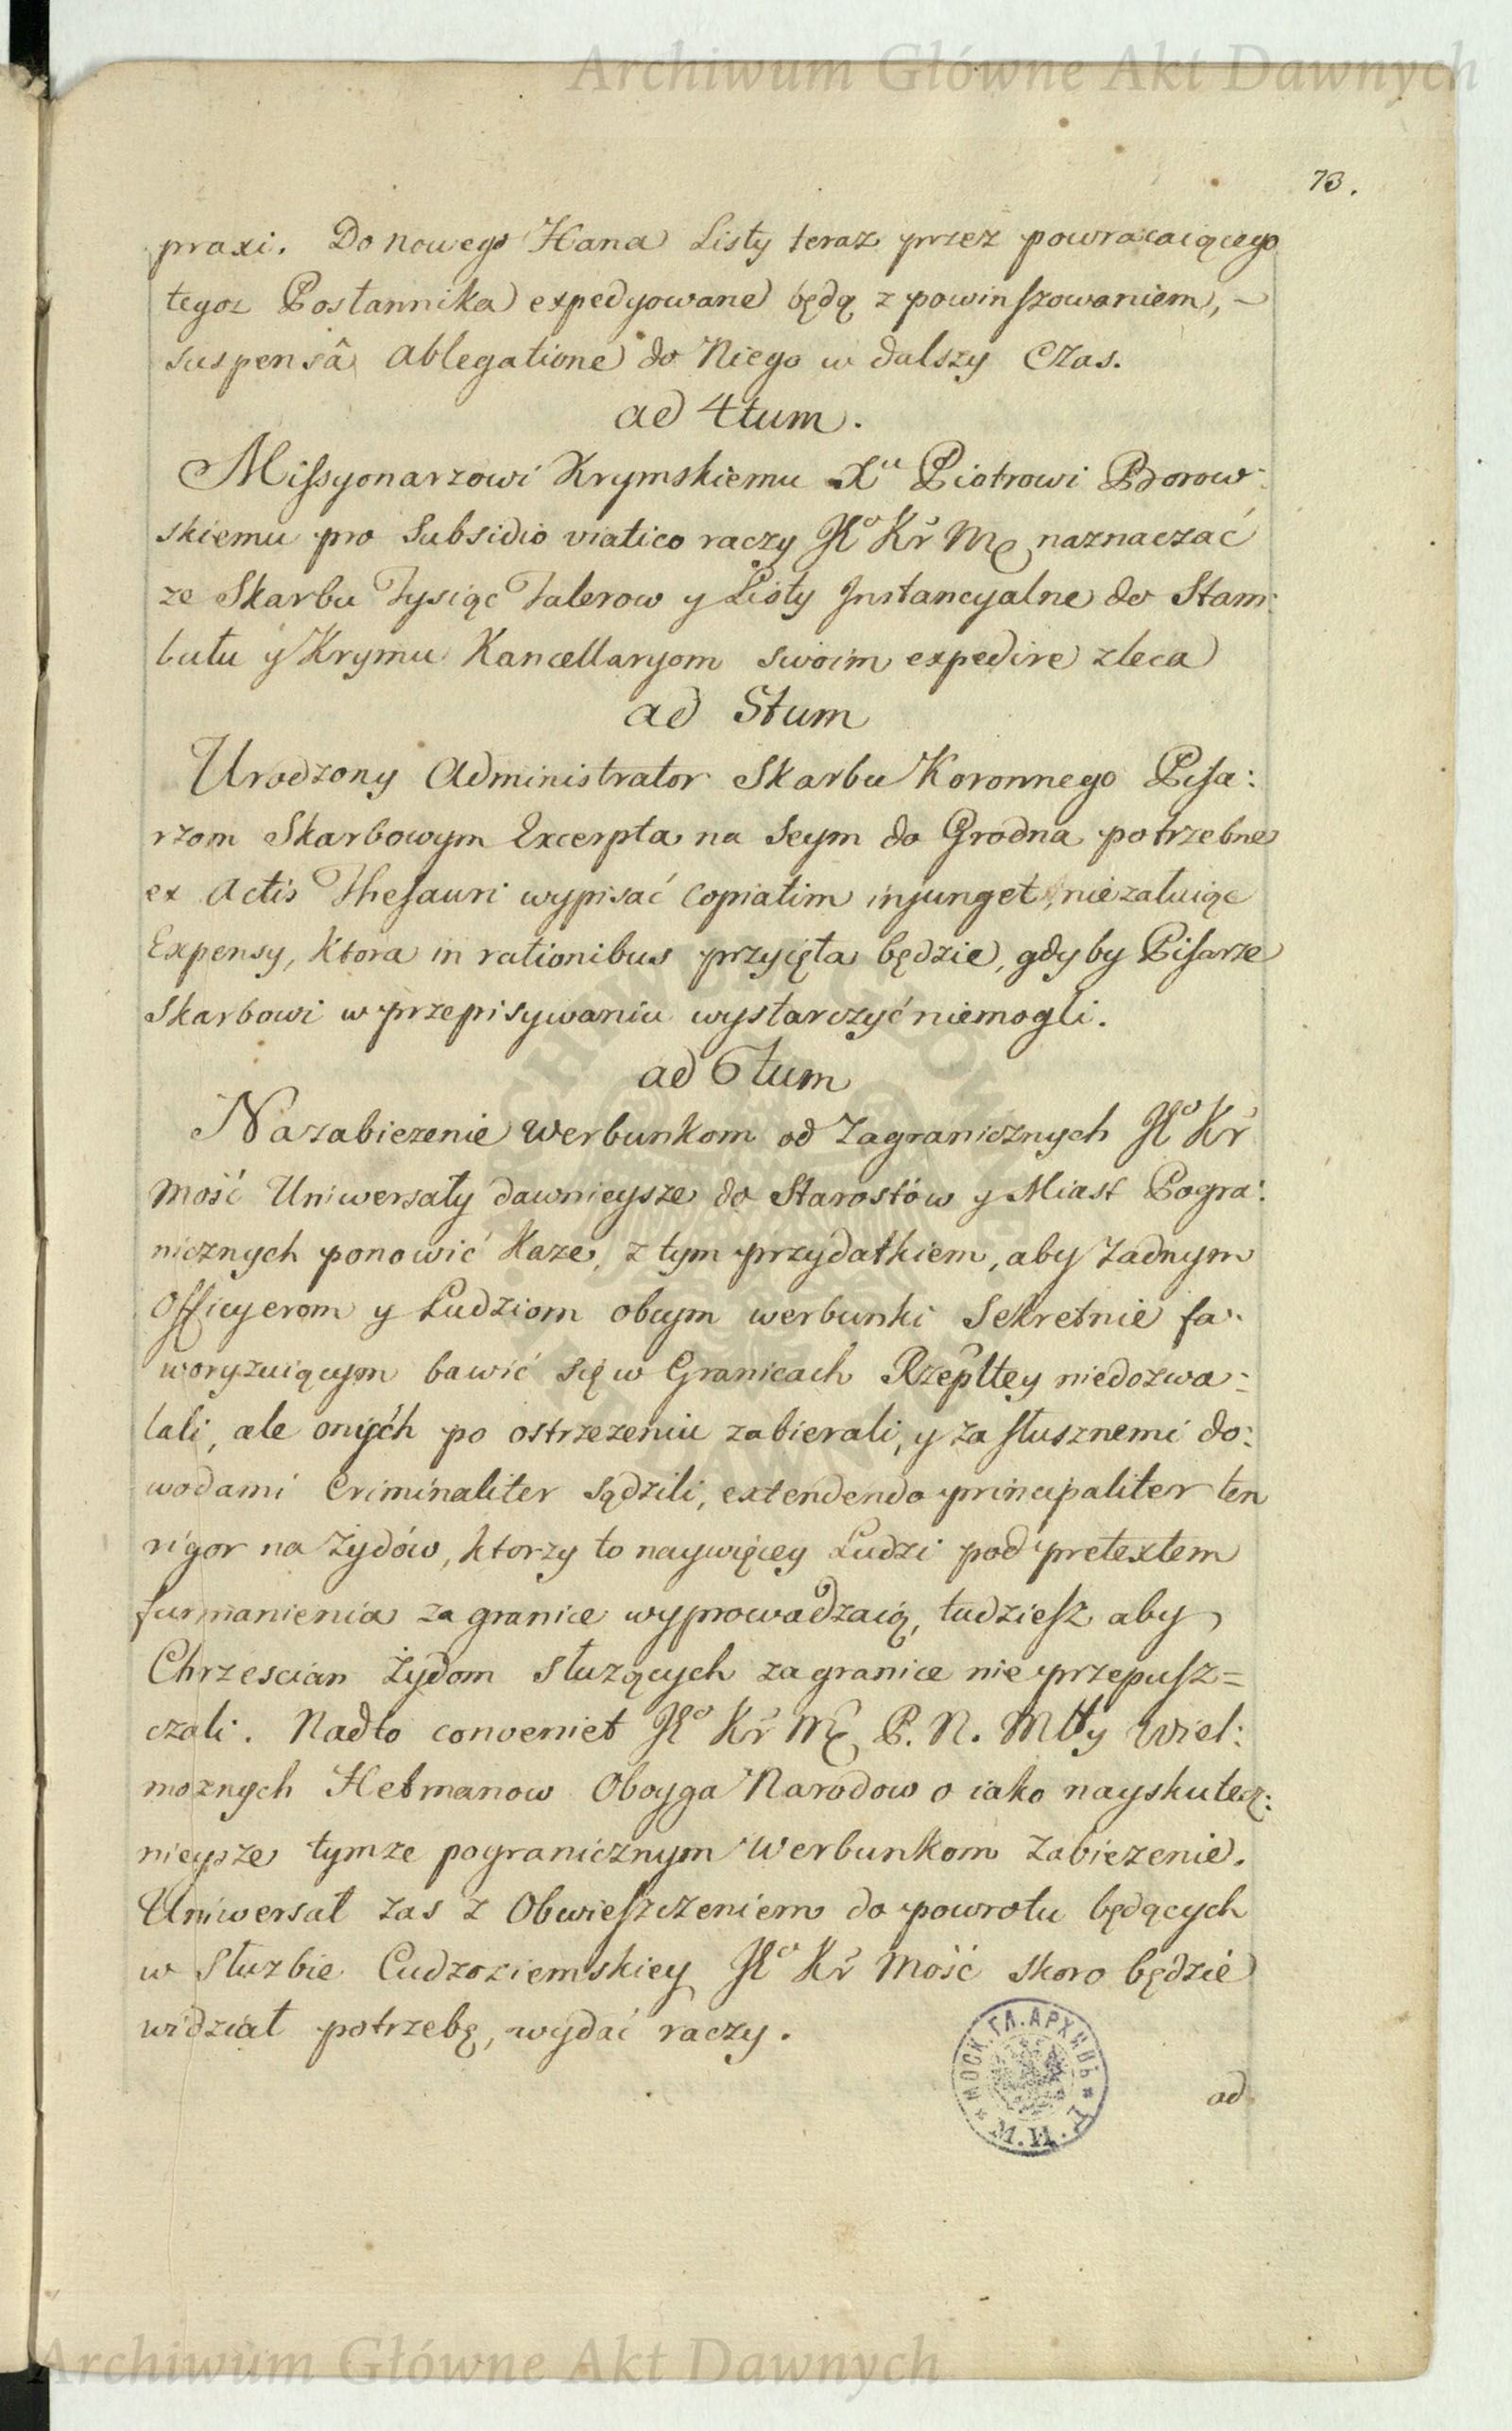 Archiwum Główne Akt Dawnych
73.
praxi. Do nowego Hana Listy teraz przez powracaiącego
tegoz Posłannika expedyowane będą z powinszowaniem, -
suspensâ Ablegatione do Niego w dalszy Czas.
ad 4tum.
Missyonarzowi Krymskiemu Xu Piotrowi Borow:
skiemu pro Subsidio viatico raczy JKo Kr̃ Mć naznaczać
ze Skarbu Tysiąc Talerow y Listy Instancyalne do Stam:
bułu y Krymu Kancellaryom swoim expedire zleca
ad 5tum
Urodzony Administrator Skarbu Koronnego Pisa:
rzom Skarbowym Excerpta na Seym do Grodna potrzebne
ex Actis Thesauri wypisać copiatim injunget, nie załuiąc
Expensy, ktora in rationibus przyięta będzie, gdyby Pisarze
Skarbowi w przepisywaniu wystarczyć niemogli.
ad 6tum
Na zabiezenie werbunkom od Zagranicznych JKo Kr̃
Mość Uniwersały dawnieysze do Starostów y Miast Pogra:
nicznych ponowić kaze, z tym przydatkiem, aby zadnym
Officyerom y Ludziom obcym werbunki Sekretnie fa:
woryzuiącym bawić się w Granicach Rzepltey niedozwa:
lali, ale onych po ostrzezeniu zabierali, y za słusznemi do:
wodami Criminaliter sądzili, extendendo principaliter ten
rigor na Żydów, ktorzy to naywięcey Ludzi pod pretextem
furmanienia za granice wyprowadzaią, tudziesz aby
Chrzescian Żydom słuzących za granice nie przepusz=
czali. Nadto conveniet JKo Kr̃ Mć P. N. Mtty Wiel:
moznych Hetmanow Oboyga Narodow o iako nayskutecz:
nieysze tymze pogranicznym Werbunkom zabiezenie.
Uniwersał zas z Obwieszczeniem do powrotu będących
w Słuzbie Cudzoziemskiey JKo Kr̃ Mość skoro będzie
widział potrzebę, wydać raczy.
МОСК. ГЛ. АРХИВЪ * М. И. Д. *
ad
Archiwum Główne Akt Dawnych